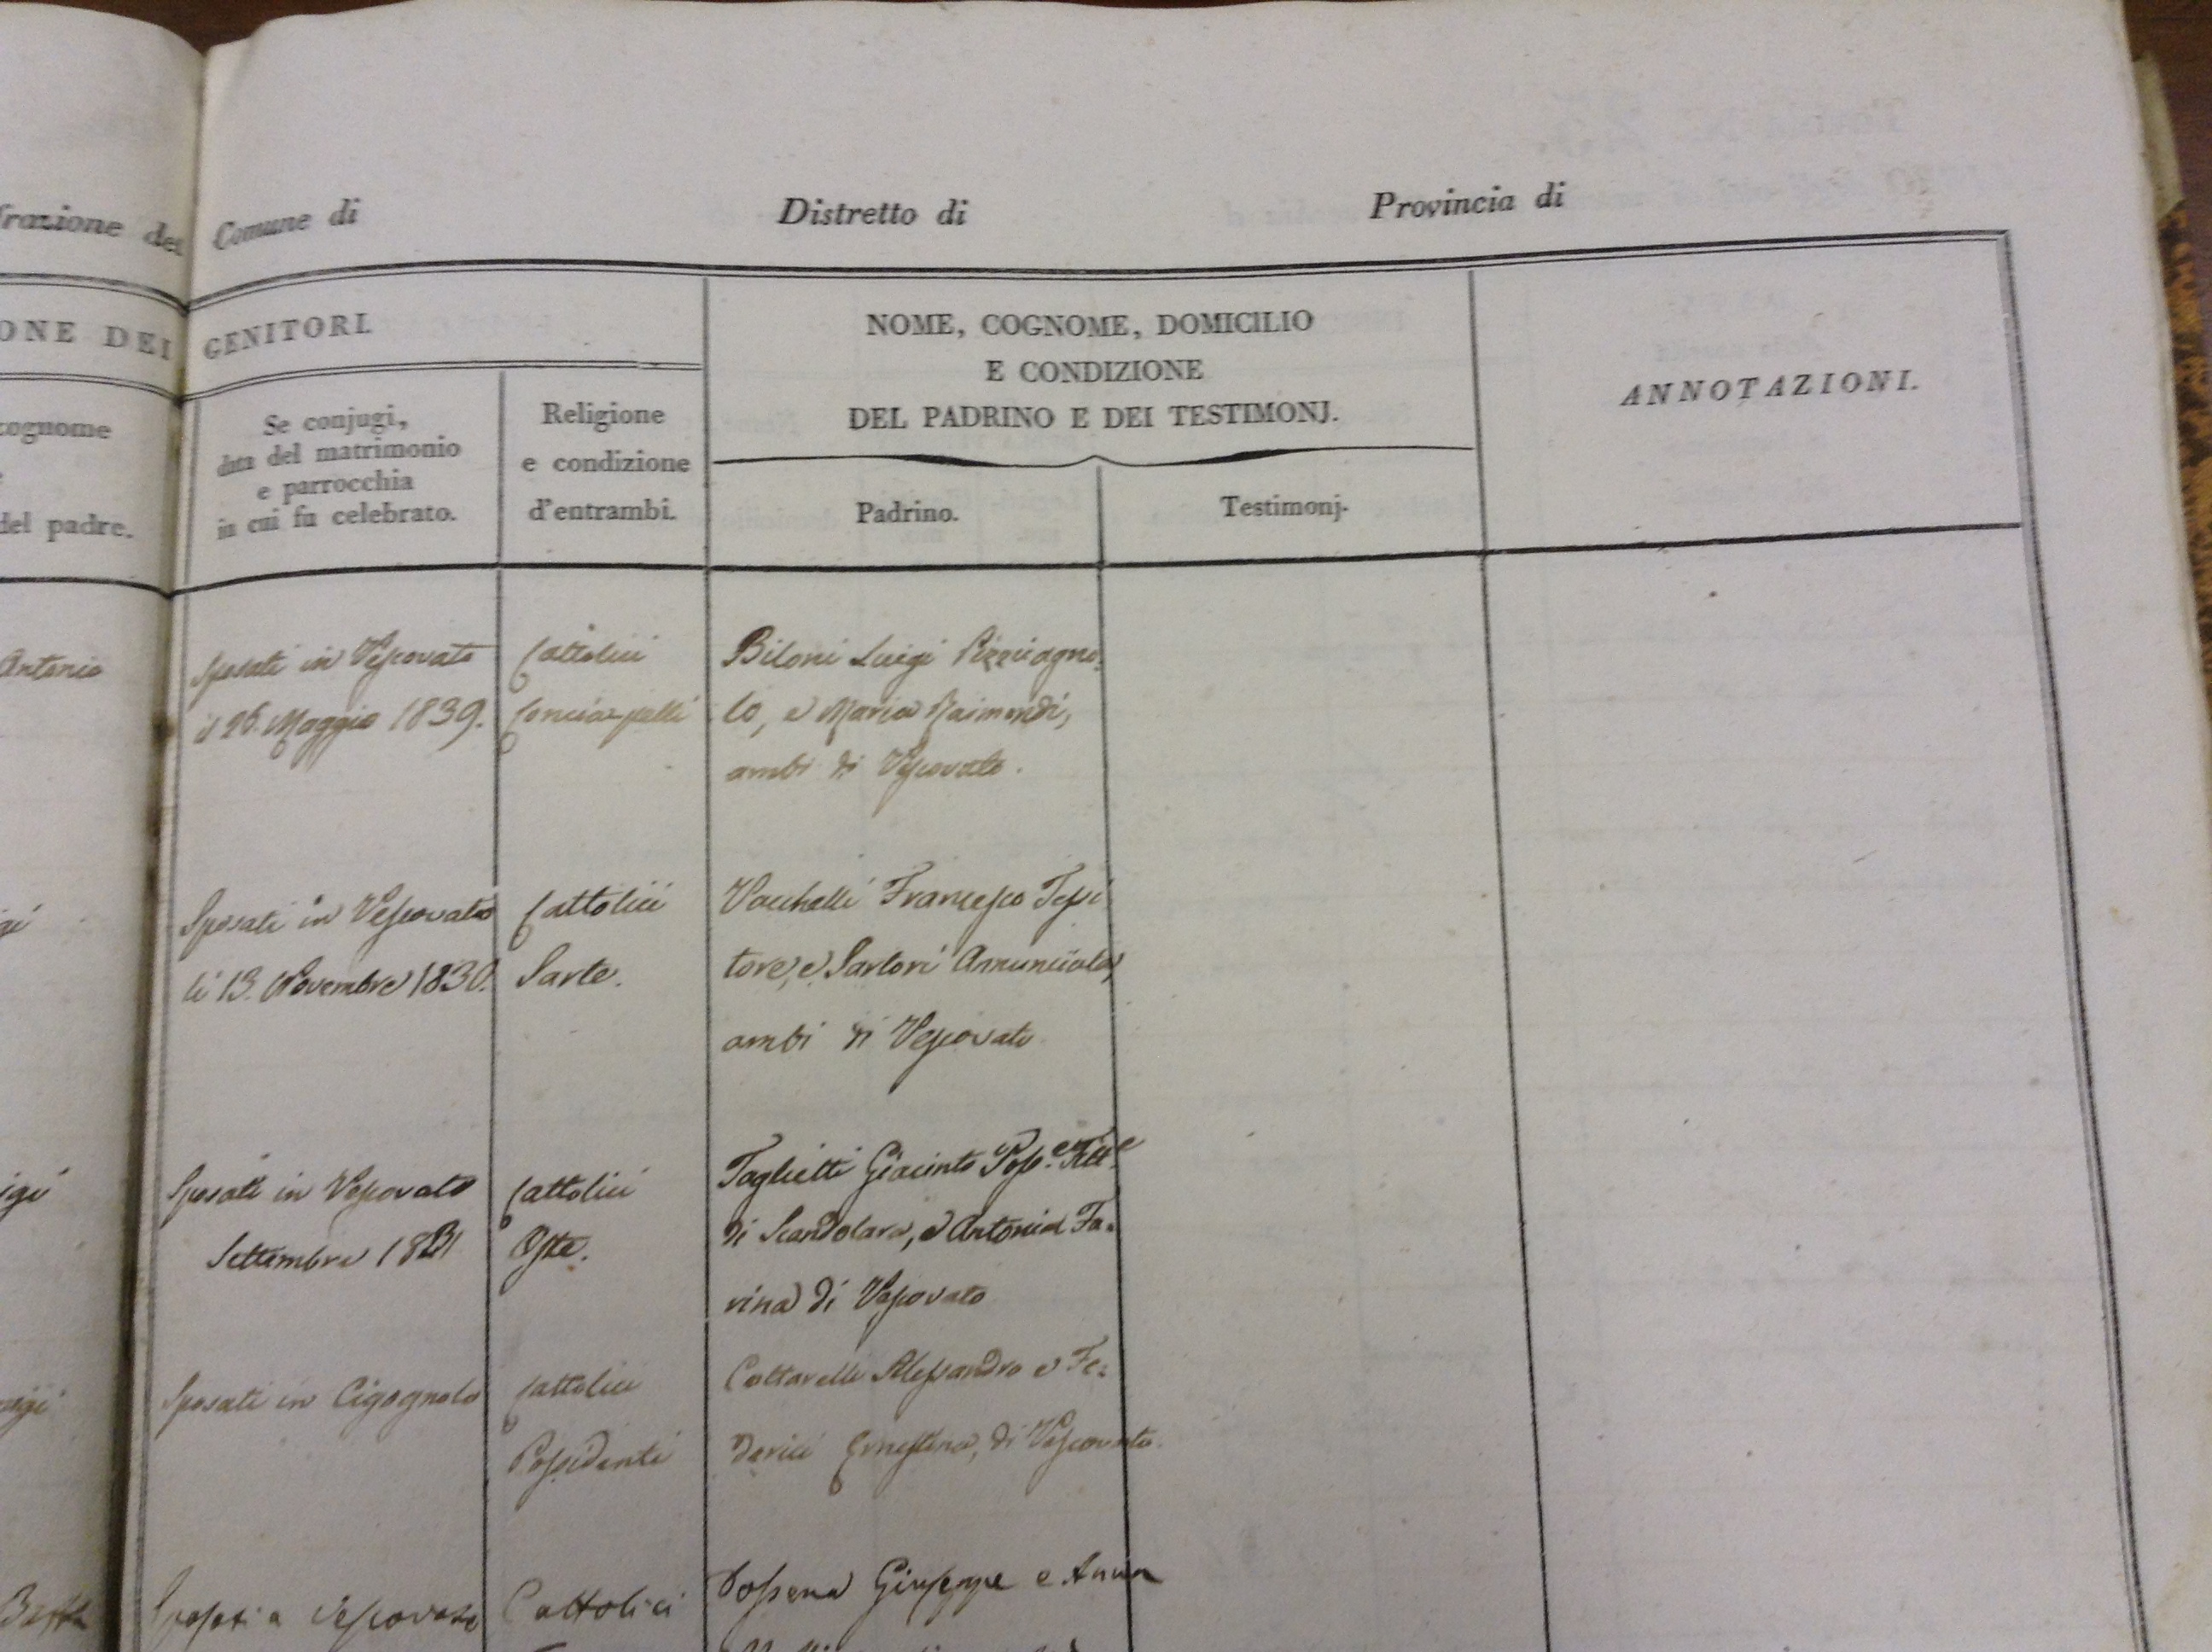 frazione del Comune di
Distretto di
Provincia di
ONE DEI GENITORI.
cognome
del padre.
Se conjugi,
data del matrimonio
e parrocchia
in cui fu celebrato.
Religione
e condizione
d'entrambi.
NOME, COGNOME, DOMICILIO
E CONDIZIONE
DEL PADRINO E DEI TESTIMONJ.
Padrino.
Testimonj.
ANNOTAZIONI.
Antonio
Sposati in Vescovato
il 26. Maggio 1839.
Cattolici
Concia-pelli
Biloni Luigi Pizzicagno=
lo, e Maria Raimondi,
ambi di Vescovato.
gi
Sposati in Vescovato
li 13. Novembre 1830.
Cattolici
Sarte.
Vacchelli Francesco Tessi
tore, e Sartori Annunciata,
ambi di Vescovato
igi
Sposati in Vescovato
Settembre
Cattolici
Oste.
Taglietti Giacinto Poss.e
di Scandolara, e Antonia Fa=
rina di Vescovato
uigi
Sposati in Cigognolo
Cattolici
Possidenti
Cottarelli Alessandro e Fe=
derici Ernestina, di Vescovato.
Sposati a Vescovato
Cattolici
Dossena Giuseppe e Anna